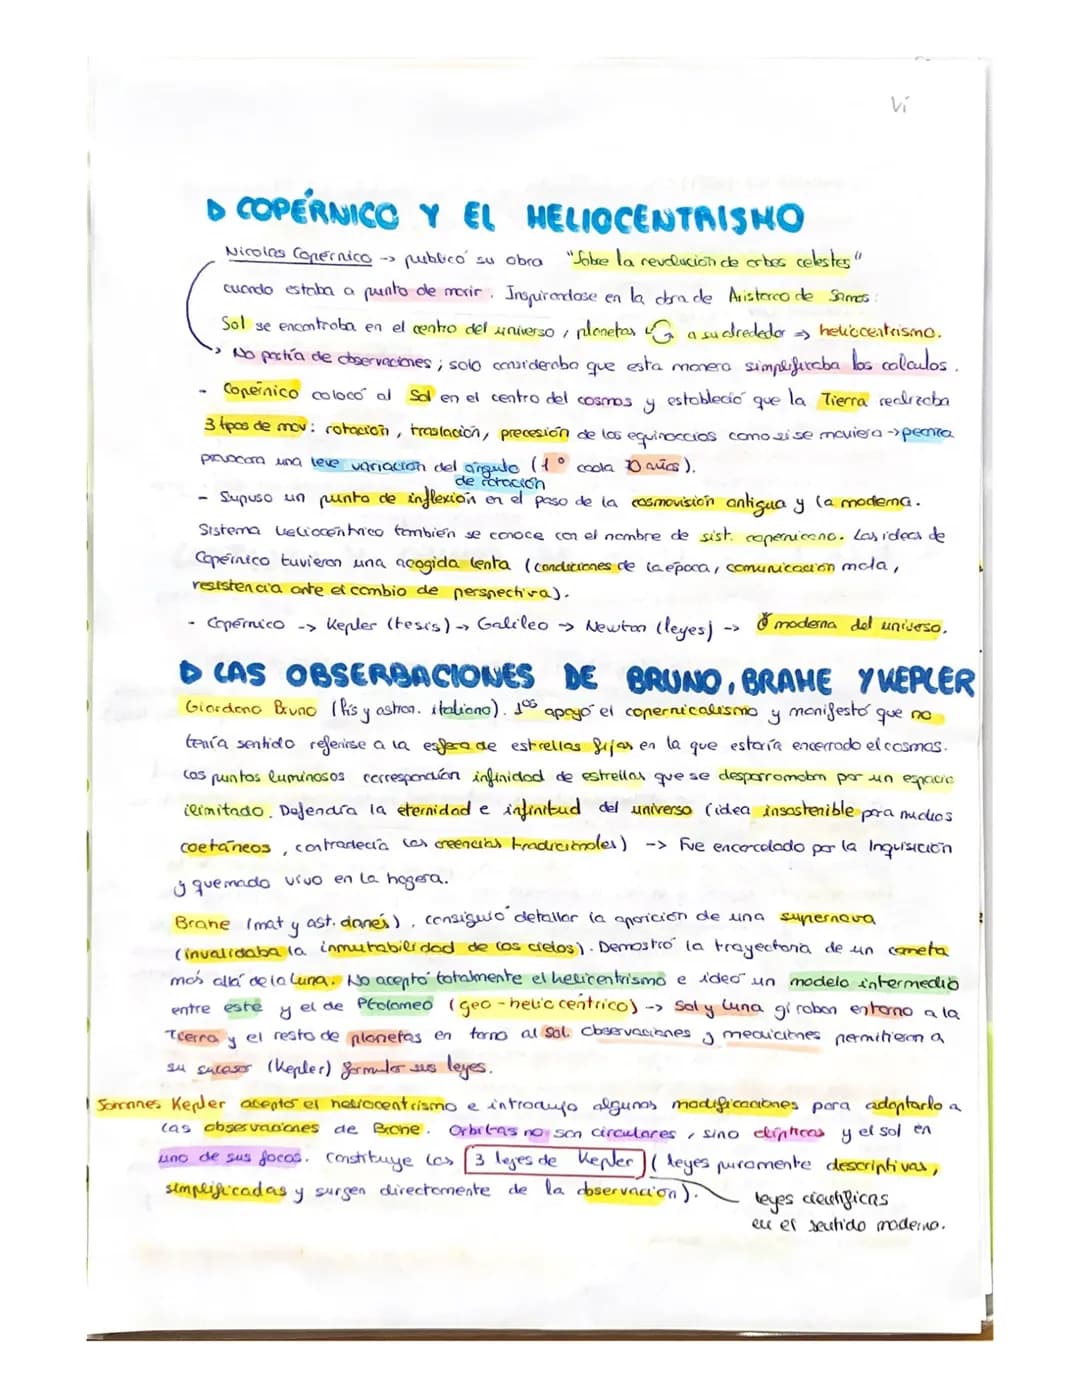 Vi
▷ COPÉRNICO Y EL HELIOCENTRISMO
Nicolas Copérnico -> publicó su obra "Sobre la revolución de orbes celestes"
cuando estaba a punto de morir. Inspirandose en la obra de Aristarco de Samos:
Sol se encontraba en el centro del universo, planetas a su alrededor => heliocentrismo.
> No partía de observaciones; solo consideraba que esta manera simplificaba los calculos.
- Copérnico colocó al Sol en el centro del cosmos y estableció que la Tierra realizaba
3 tipos de mov: rotación, traslación, precesión de los equinoccios como si se moviera ->
provocara una leve variación del ángulo (1° cada 70 años).
de rotación
- Supuso un punto de inflexión en el paso de la cosmovisión antigua y la moderna.
Sistema heliocéntrico también se conoce con el nombre de sist. copernicano. Las ideas de
Copérnico tuvieron una acogida lenta (condiciones de la época, comunicación mala,
resistencia ante el cambio de perspectiva).
- Copérnico -> Kepler (tesis) -> Galileo -> Newton (leyes) -> moderna del universo.
▷ LAS OBSERBACIONES DE BRUNO, BRAHE Y KEPLER
Giordano Bruno (fís y astron. italiano). 1os apoyó el copernicalismo y manifestó que no
tenía sentido referirse a la esfera de estrellas fijas en la que estaría encerrado el cosmos.
Los puntos luminosos correspondían infinidad de estrellas que se desparromaban por un espacio
ilimitado. Defendía la eternidad e infinitud del universo (idea insostenible para muchos
coetáneos, contradecía las creencias tradicionales) -> Fue encarcelado por la Inquisición
y quemado vivo en la hogera.
Brahe (mat y ast. danés), consiguió detallar la aparición de una supernova
(invalidaba la inmutabilidad de los cielos). Demostró la trayectoria de un cometa
más allá de la Luna. No aceptó totalmente el helicentrismo e ideó un modelo intermedio
entre este y el de Ptolomeo (geo-heliocéntrico) -> Sol y Luna giraban entorno a la
Tierra y el resto de planetas en torno al Sol. Observaciones y mediciones permitieron a
su sucesor (Kepler) formular sus leyes.
Johannes Kepler aceptó el heliocentrismo e introdujo algunas modificaciones para adaptarlo a
las observaciones de Brahe. Orbitas no son circulares, sino elípticas y el sol en
uno de sus focos. Constituye las 3 leyes de Kepler (leyes puramente descriptivas,
simplificadas y surgen directamente de la observación).
leyes científicas
en el sentido moderno.